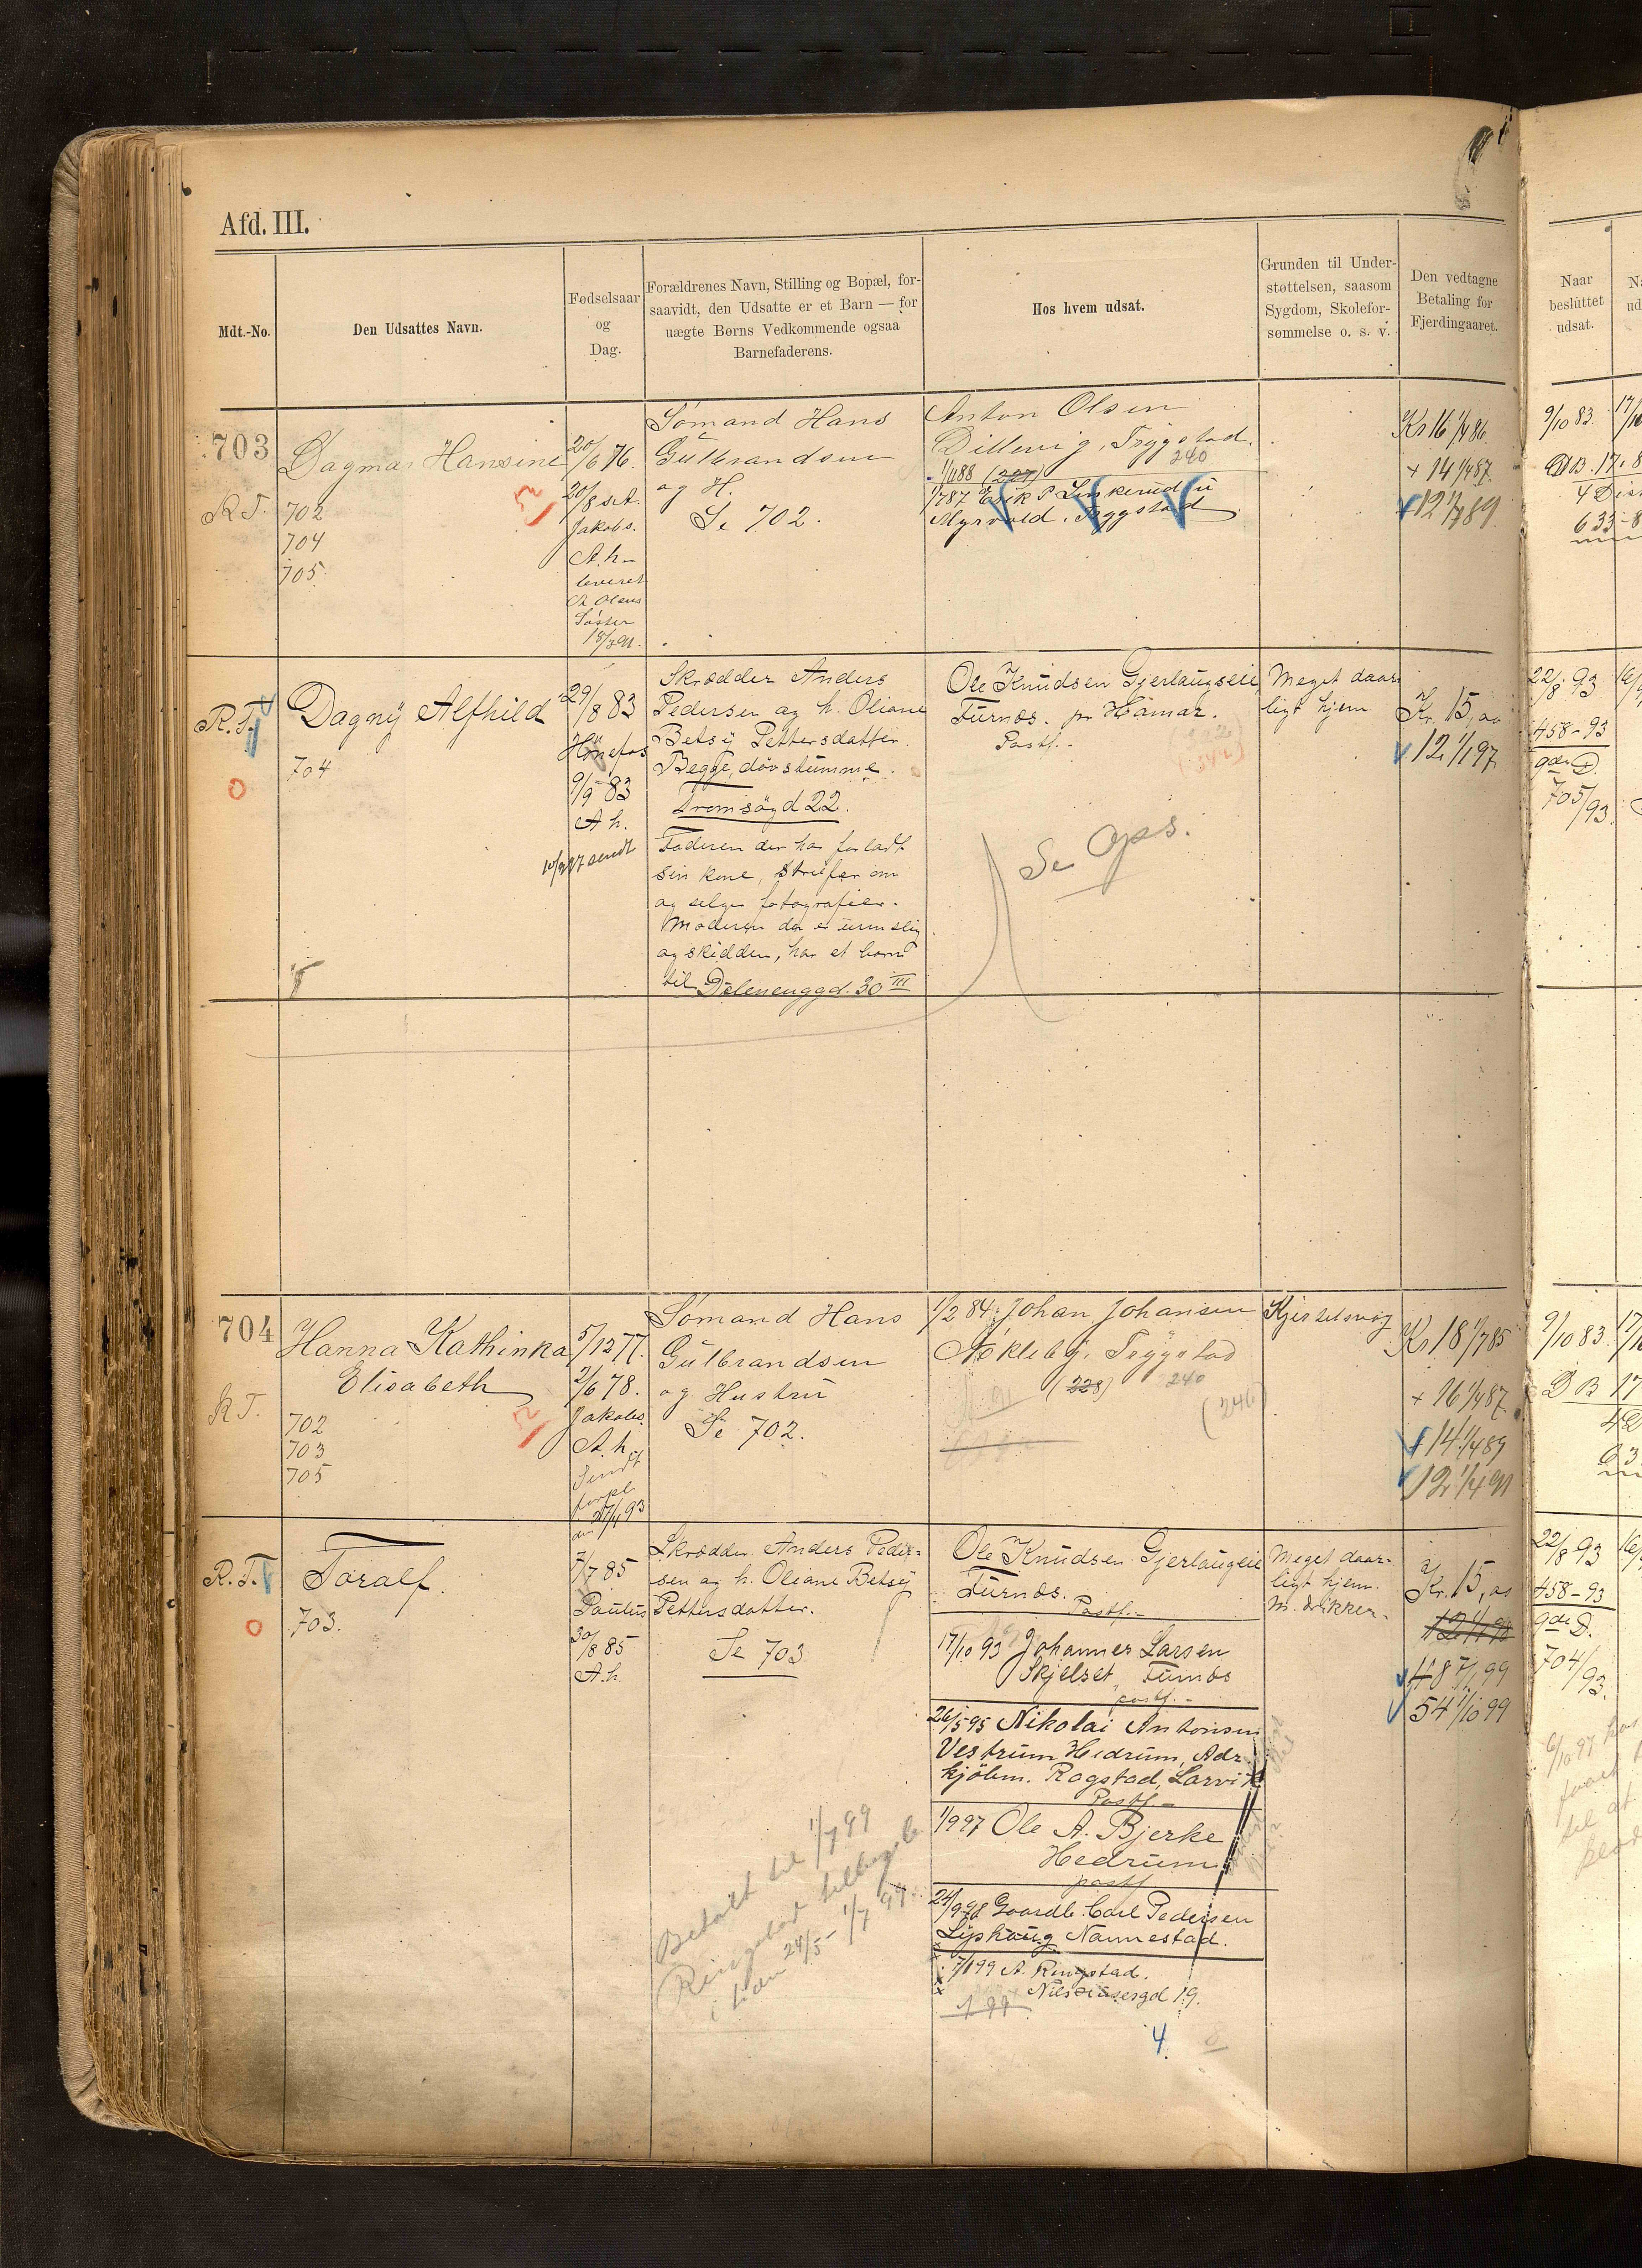 Afd. III.
Mdt.-No.
Den Udsattes Navn.
Fødselsaar
og
Dag.
Forældrenes Navn, Stilling og Bopæl, for-
saavidt, den Udsatte er et Barn — for
uægte Børns Vedkommende ogsaa
Barnefaderens.
Hos hvem udsat.
Grunden til Under-
støttelsen, saasom
Sygdom, Skolefor-
sømmelse o. s. v.
Den vedtagne
Betaling for
Fjerdingaaret.
Naar
besluttet
udsat.
703
R T.
Dagmar Hansine
702
704
705
20/6 76.
20/8
Jakobs.
A. h-
leveret
Olsens
Søster
Sømand Hans
Gulbrandsen
og H.
Se 702.
Anton Olsen
Dillevig, Trygstad.
240
Myrvold. Trygstad
Kr 16 1/4 86.
+ 14 1/4 87.
12 1/7 89
9/10 83
R. T.
Dagny Alfhild
704
29/8 83
Hønefos
9/9 83
A h.
sendt
Skrædder Anders
Pedersen og h. Oliane
Betsy Pettersdatter.
Begge døvstumme.
Tromsøgd 22.
Faderen der har forladt
sin kone, streifer om
og selger fotografier.
Moderen der er
og skidden, har et barn
til Dælenenggd. 30 III
Ole Knudsen Gjerlaugseie
Furnæs. pr Hamar.
Postf.-
Se Ops.
Meget daar-
ligt hjem
Kr. 15,00
12 1/1 97
22/8 93
458-93
705/93
704
R T.
Hanna Kathinka
Elisabeth
702
703
705
5/12 77.
2/6 78.
Jakobs.
A. h.
Sendt
Sømand Hans
Gulbrandsen
og Hustru
Se 702.
1/2 84. Johan Johansen
Nækleby. Trygstad
(228) 240
(246)
Kr 18 1/7 85
+ 16 1/4 87
14 1/4 89
12 1/4 91
9/10 83
R. T.
Toralf.
703.
7/7 85
Paulus
30/8 85
A. h.
Skrædder Anders Peder-
sen og h. Oliane Betsy
Pettersdatter.
Se 703
Betalt til 1/7 99
Ole Knudsen Gjerlaugseie
Furnæs.
Postf.-
17/10 93 Johannes Larsen
Skjelset, Furnæs
postf.-
26/5 95 Nikolai Antonsen
Vestrum Hedrum, Adr.
kjøbm. Rogstad, Larvik
Postf.-
1/9 97 Ole A. Bjerke
Hedrum
postf
24/9 98 Gaardb. Carl Pedersen
Nannestad.
1/7 99 A. Ringstad.
4.
Meget daar-
ligt hjem.
M. drikker.
Kr. 15,00
54 1/10 99
22/8 93
458-93
704/93.